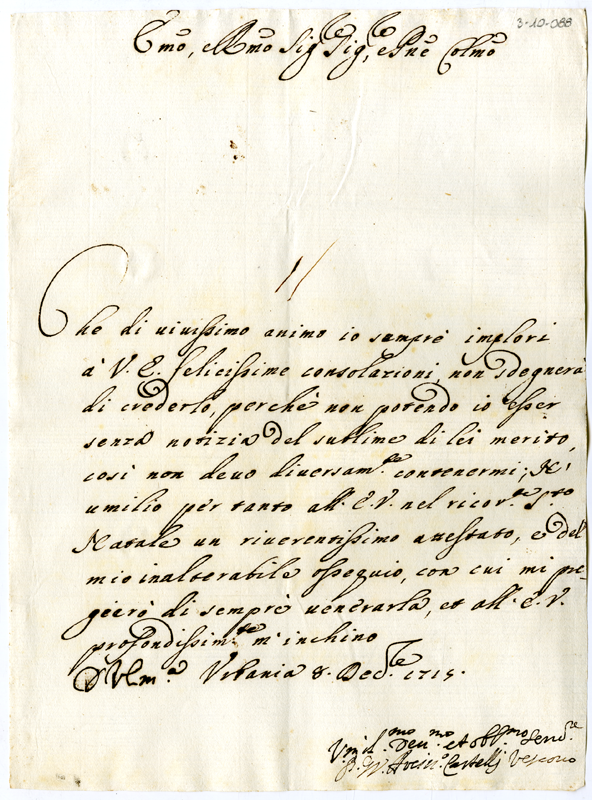 3-10-088
Emo, e Rmo Sig Sig, e Pne Colmo
Che di viuissimo animo io sempre implori
à V. E. felicissime consolazioni, non sdegnerà
di crederlo, perche non potendo io esser
senza notizia del sublime di lei merito,
così non deuo diuersam.te contenermi; Ne
umilio per tanto all' E. V. nel ricor.te S.to
Natale un riuerentissimo attestato, e del
mio inalterabile ossequio, con cui mi pre-
gierò di sempre uenerarla, et all' E. V.
profondissim.te m' inchino
D V Em.a Vrbania 8. Dec.e 1715.
Vmil.mo Deu.mo et obb.mo Seru.re
Castelli Vescouo